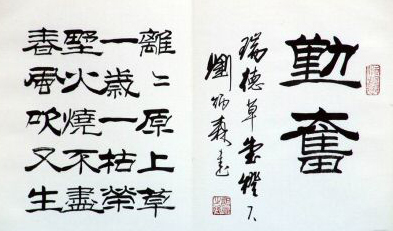 勤奮
瑞德草堂燈下
劉炳森
離〻原上草
一歲一枯榮
墅火燒不盡
春風吹又生